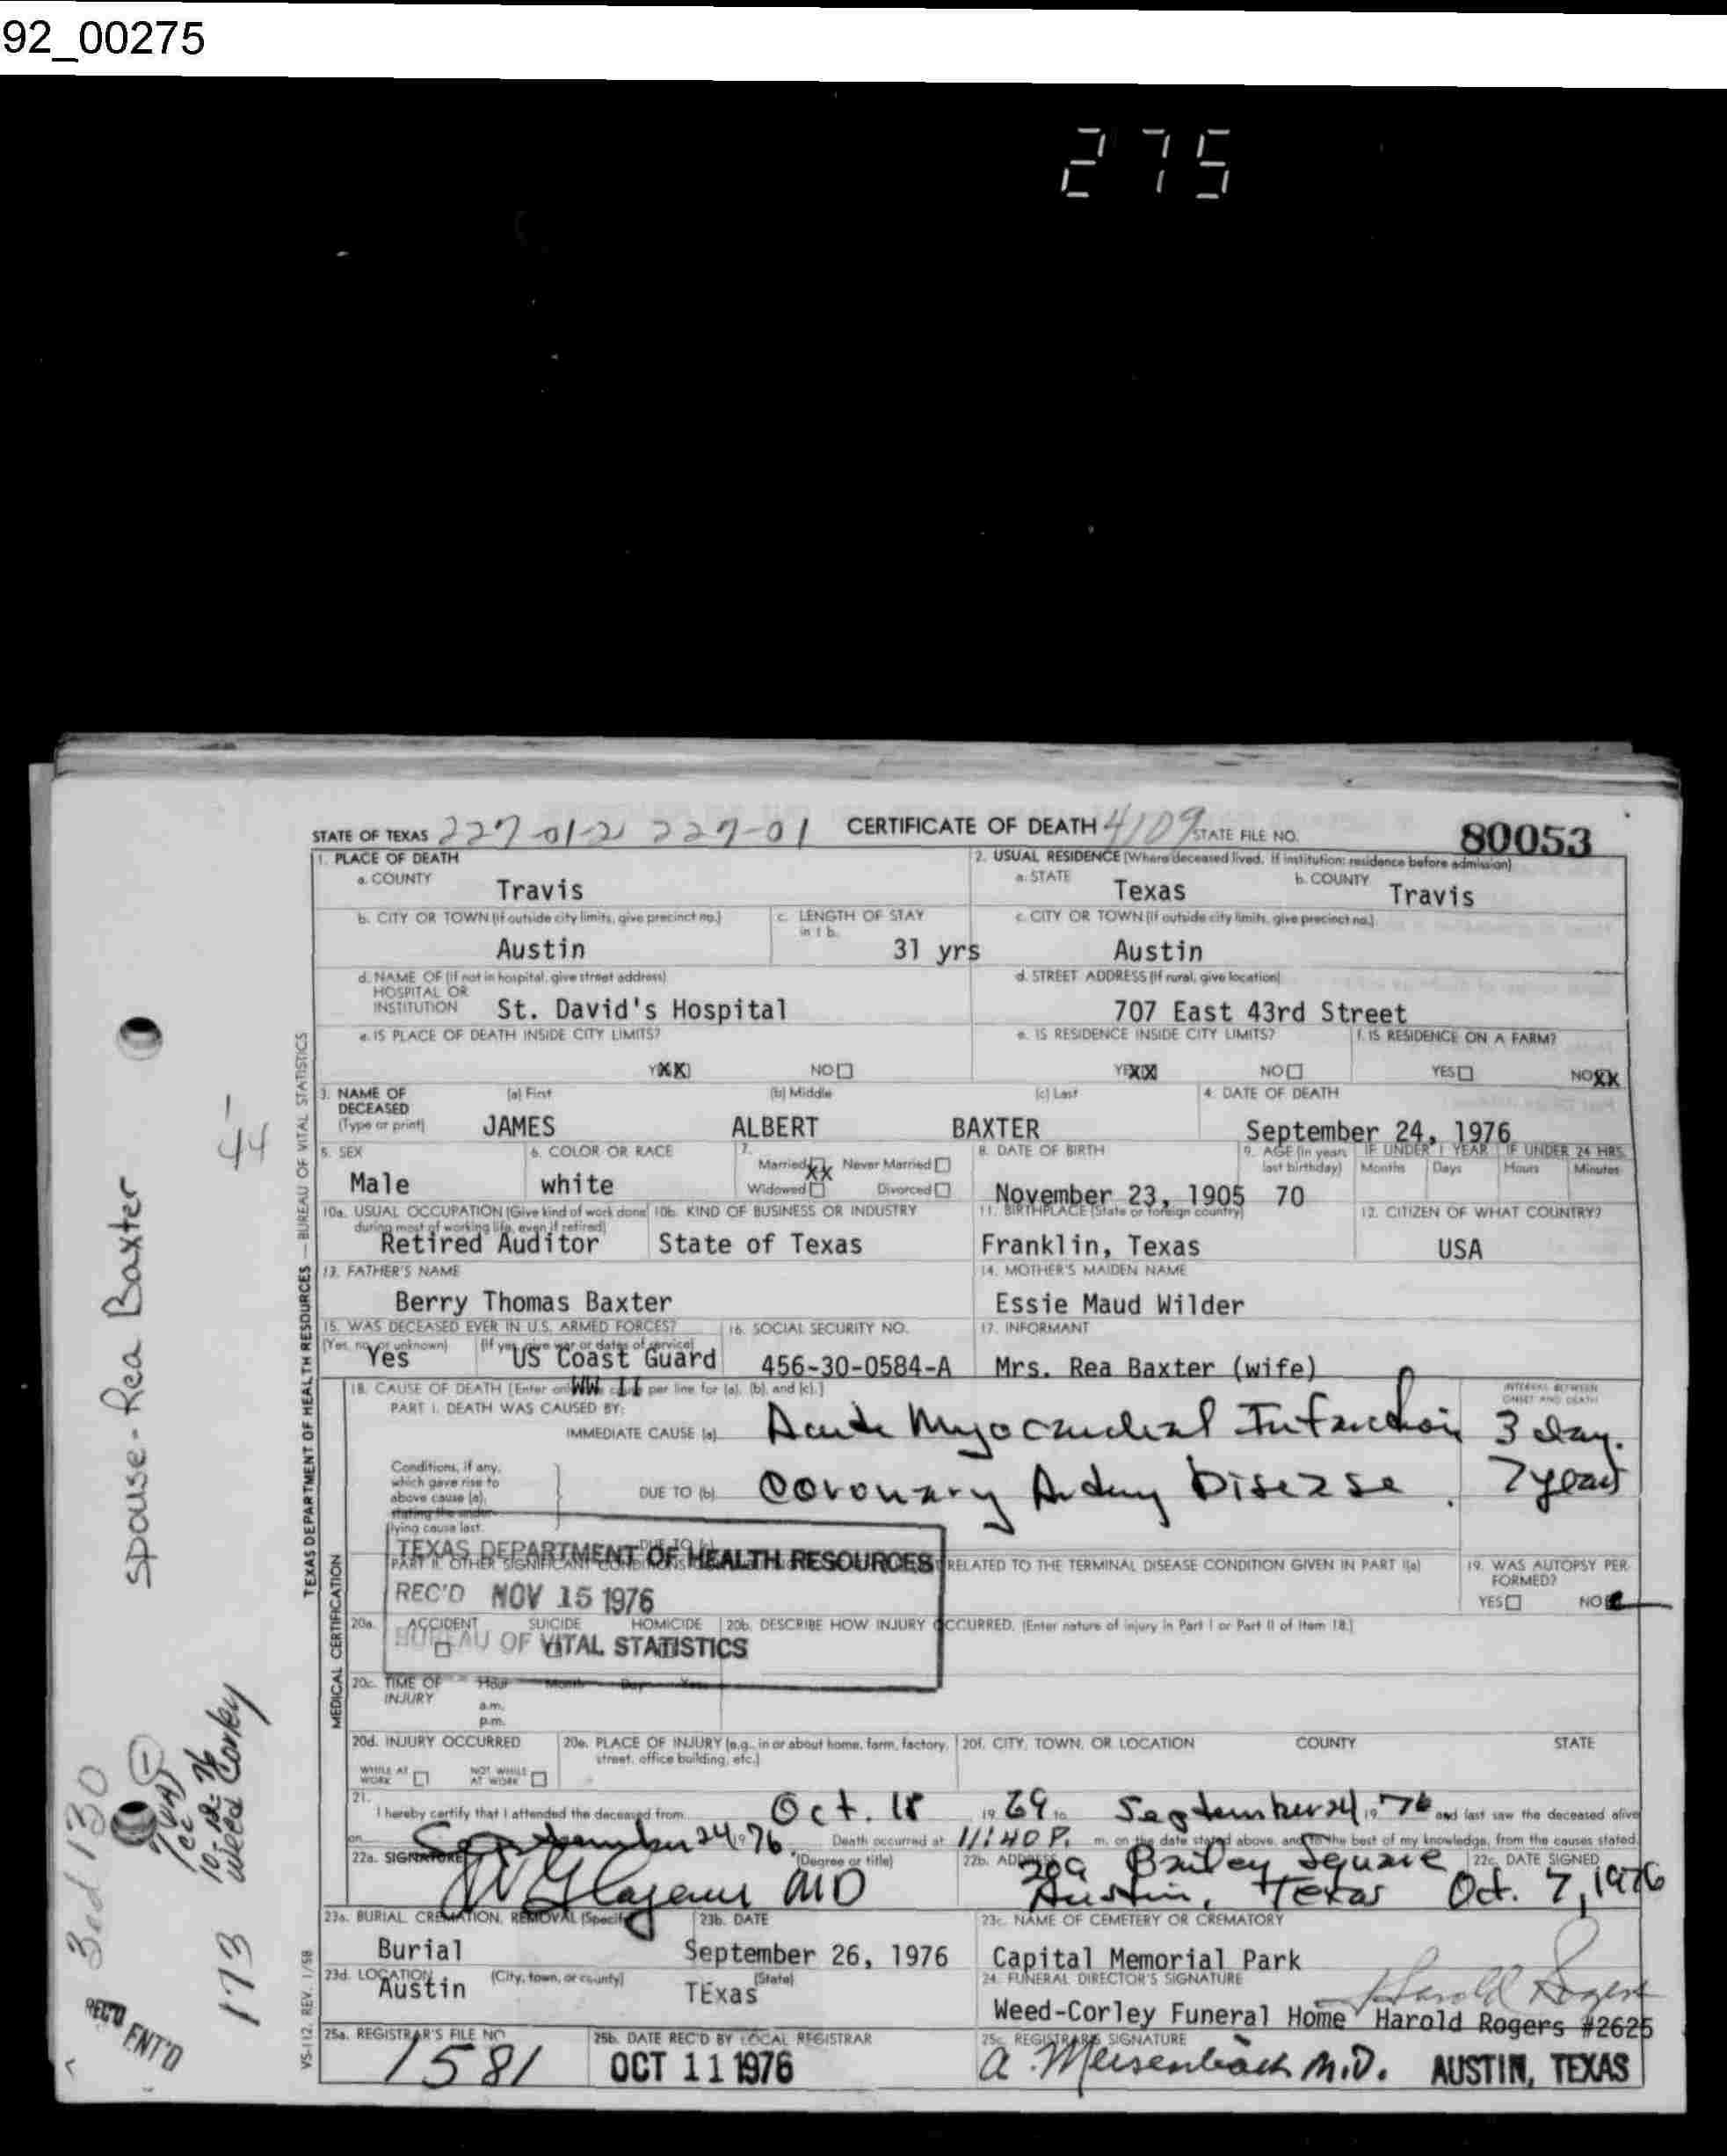 92_00275
275
STATE OF TEXAS 227-01-2 227-01 CERTIFICATE OF DEATH 4109 STATE FILE NO. 80053
1. PLACE OF DEATH
a. COUNTY
Travis
2. USUAL RESIDENCE (Where deceased lived. If institution: residence before admission)
a. STATE
Texas
b. COUNTY
Travis
b. CITY OR TOWN (If outside city limits, give precinct no.)
Austin
c. LENGTH OF STAY
in 1 b.
31 yrs
c. CITY OR TOWN (If outside city limits, give precinct no.)
Austin
d. NAME OF (If not in hospital, give street address)
HOSPITAL OR
INSTITUTION
St. David's Hospital
d. STREET ADDRESS (If rural, give location)
707 East 43rd Street
e. IS PLACE OF DEATH INSIDE CITY LIMITS?
YXX NO
e. IS RESIDENCE INSIDE CITY LIMITS?
YEXX NO
f. IS RESIDENCE ON A FARM?
YES NOXX
3. NAME OF
DECEASED
(Type or print)
(a) First
JAMES
(b) Middle
ALBERT
(c) Last
BAXTER
4. DATE OF DEATH
September 24, 1976
5. SEX
Male
6. COLOR OR RACE
white
7.
Married XX Never Married
Widowed Divorced
8. DATE OF BIRTH
November 23, 1905
9. AGE (In years
last birthday)
70
IF UNDER 1 YEAR
Months Days
IF UNDER 24 HRS.
Hours Minutes
10a. USUAL OCCUPATION (Give kind of work done
during most of working life, even if retired)
Retired Auditor
10b. KIND OF BUSINESS OR INDUSTRY
State of Texas
11. BIRTHPLACE (State or foreign country)
Franklin, Texas
12. CITIZEN OF WHAT COUNTRY?
USA
13. FATHER'S NAME
Berry Thomas Baxter
14. MOTHER'S MAIDEN NAME
Essie Maud Wilder
15. WAS DECEASED EVER IN U.S. ARMED FORCES?
(Yes, no, or unknown)
Yes
(If yes, give war or dates of service)
US Coast Guard
WW II
16. SOCIAL SECURITY NO.
456-30-0584-A
17. INFORMANT
Mrs. Rea Baxter (wife)
18. CAUSE OF DEATH [Enter only one cause per line for (a), (b), and (c).]
PART I. DEATH WAS CAUSED BY:
INTERVAL BETWEEN
ONSET AND DEATH
IMMEDIATE CAUSE (a) Acute Myocardial Infarction 3 day.
Conditions, if any,
which gave rise to
above cause (a),
stating the under-
lying cause last.
DUE TO (b) Coronary Artery Disease. 7 years
DUE TO (c)
PART II. OTHER SIGNIFICANT CONDITIONS RELATED TO THE TERMINAL DISEASE CONDITION GIVEN IN PART I(a)
TEXAS DEPARTMENT OF HEALTH RESOURCES
REC'D NOV 15 1976
BUREAU OF VITAL STATISTICS
19. WAS AUTOPSY PER-
FORMED?
YES NO
20a. ACCIDENT SUICIDE HOMICIDE
20b. DESCRIBE HOW INJURY OCCURRED. (Enter nature of injury in Part I or Part II of Item 18.)
20c. TIME OF
INJURY
Hour Month Day Year
a.m.
p.m.
20d. INJURY OCCURRED
WHILE AT
WORK
NOT WHILE
AT WORK
20e. PLACE OF INJURY (e.g., in or about home, farm, factory,
street, office building, etc.)
20f. CITY, TOWN, OR LOCATION COUNTY STATE
21.
I hereby certify that I attended the deceased from Oct. 18 1969 to September 24 1976 and last saw the deceased alive
on September 24 1976. Death occurred at 11:40 P. m. on the date stated above, and to the best of my knowledge, from the causes stated.
22a. SIGNATURE (Degree or title)
MD
22b. ADDRESS
209 Bailey Square
Austin, Texas
22c. DATE SIGNED
Oct. 7, 1976
23a. BURIAL, CREMATION, REMOVAL (Specify)
Burial
23b. DATE
September 26, 1976
23c. NAME OF CEMETERY OR CREMATORY
Capital Memorial Park
23d. LOCATION (City, town, or county) (State)
Austin TExas
24. FUNERAL DIRECTOR'S SIGNATURE
Harold Rogers
Weed-Corley Funeral Home Harold Rogers #2625
25a. REGISTRAR'S FILE NO.
1581
25b. DATE REC'D BY LOCAL REGISTRAR
OCT 11 1976
25c. REGISTRAR'S SIGNATURE
a. Meisenbach M.D. AUSTIN, TEXAS
TEXAS DEPARTMENT OF HEALTH RESOURCES — BUREAU OF VITAL STATISTICS
MEDICAL CERTIFICATION
VS-112, REV. 1/58
Spouse - Rea Baxter
44
1
7 cc
10-12-76
Weed Corley
173
REC'D
ENT'D